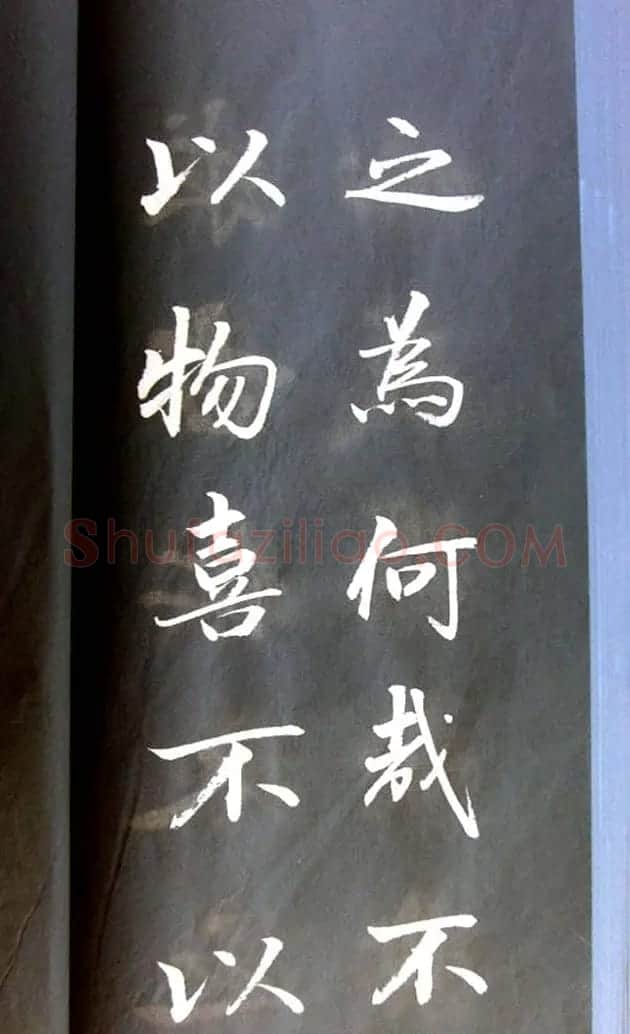 之為何哉不
以物喜不以
Shufaziliao.COM